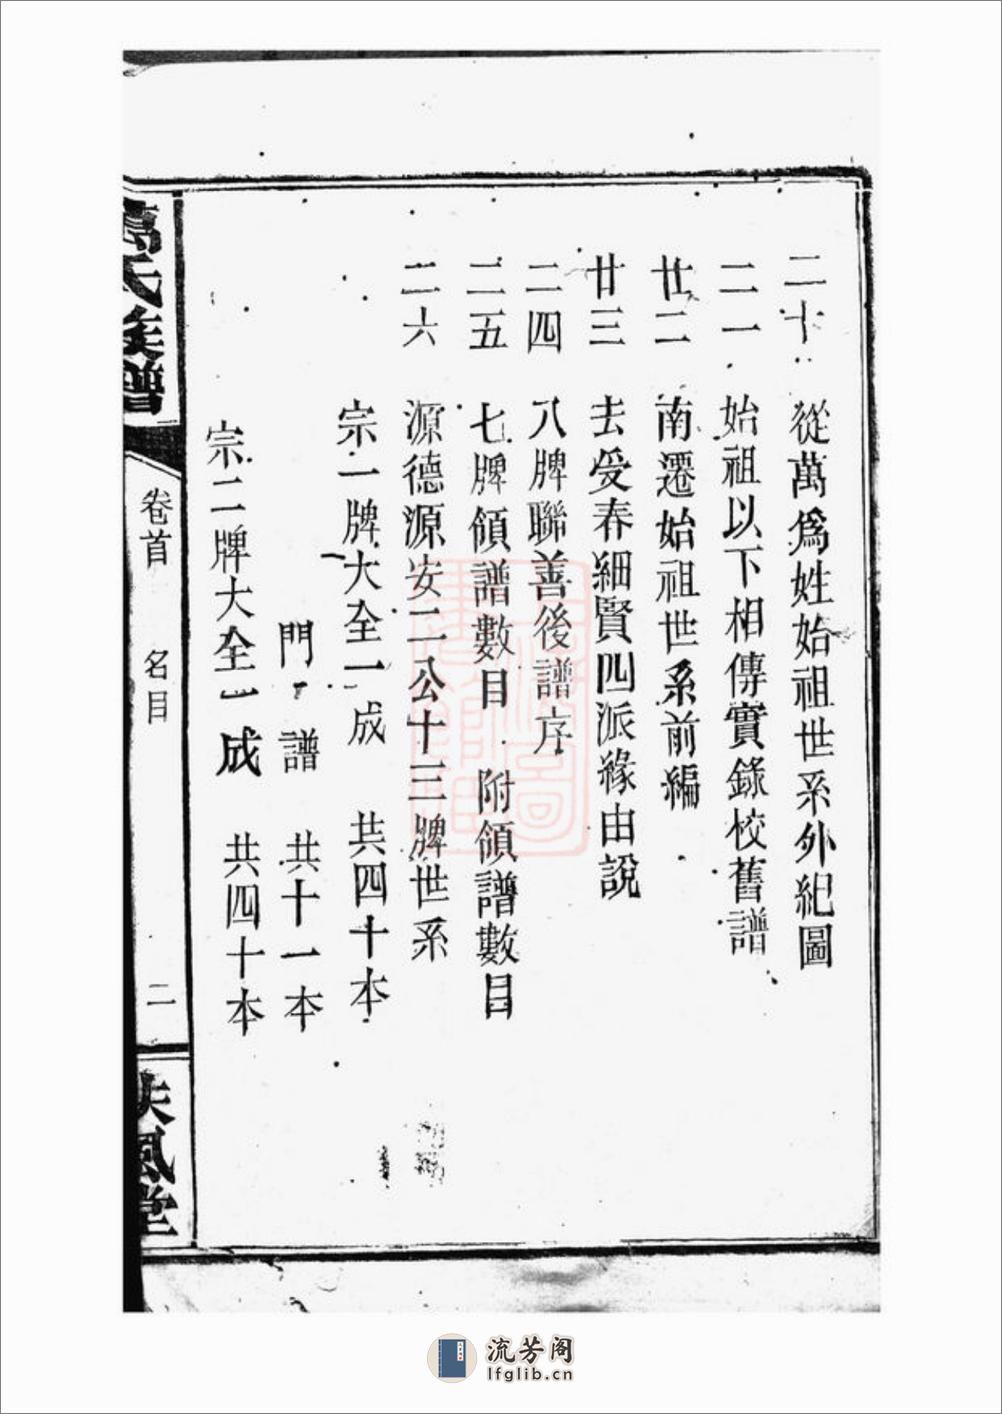 二十 從萬爲姓始祖世系外紀圖
二一 始祖以下相傳實錄校舊譜
廿二 南遷始祖世系前編
廿三 去受春細賢四派緣由說
二四 八牌聯善後譜序
二五 七牌領譜數目 附領譜數目
二六 源德源安二公十三牌世系
宗一牌大全一成 共四十本
門 譜 共十一本
宗二牌大全一成 共四十本
萬氏族譜
卷首 名目 二
扶風堂
流芳阁
lfglib.cn